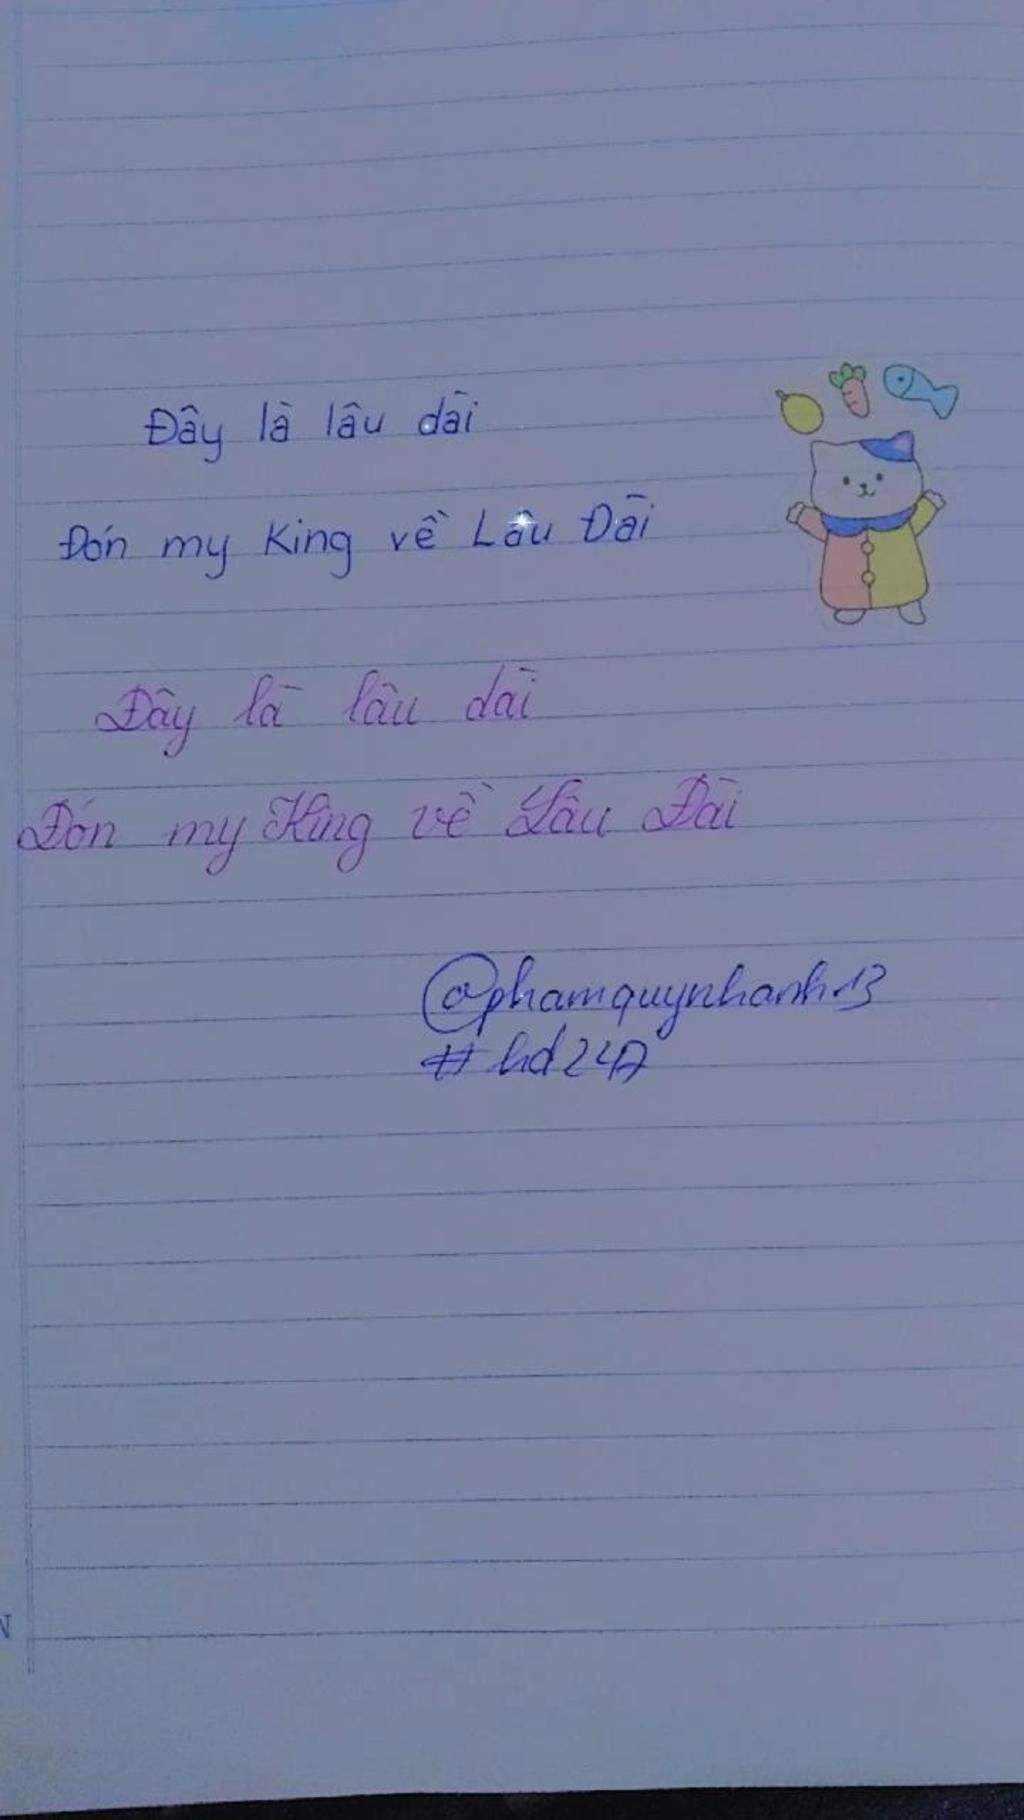 Đây là lâu dài
Đón my King về Lâu Đài
Đây là lâu dài
Đón my King về Lâu Đài
@phamquynhanh.13
#hd247
N